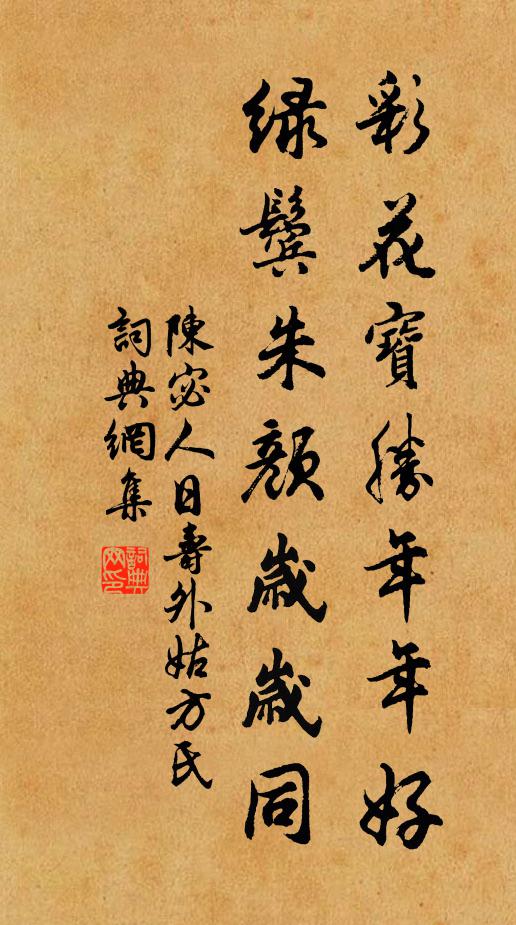 彩花寶勝年年好
綠鬢朱顏歲歲同
陳宓人日壽外姑方氏
詞典網集
詞典網印